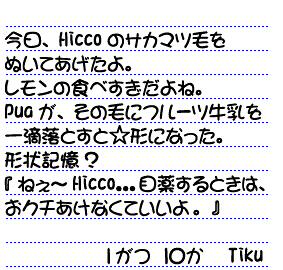 今日、Hiccoのサカマツ毛を
ぬいてあげたよ。
レモンの食べすぎだよね。
Puaが、その毛にフルーツ牛乳を
一滴落とすと☆形になった。
形状記憶？
『ねぇ～Hicco…目薬するときは、
おクチあけなくていいよ。』
1がつ 10か Tiku